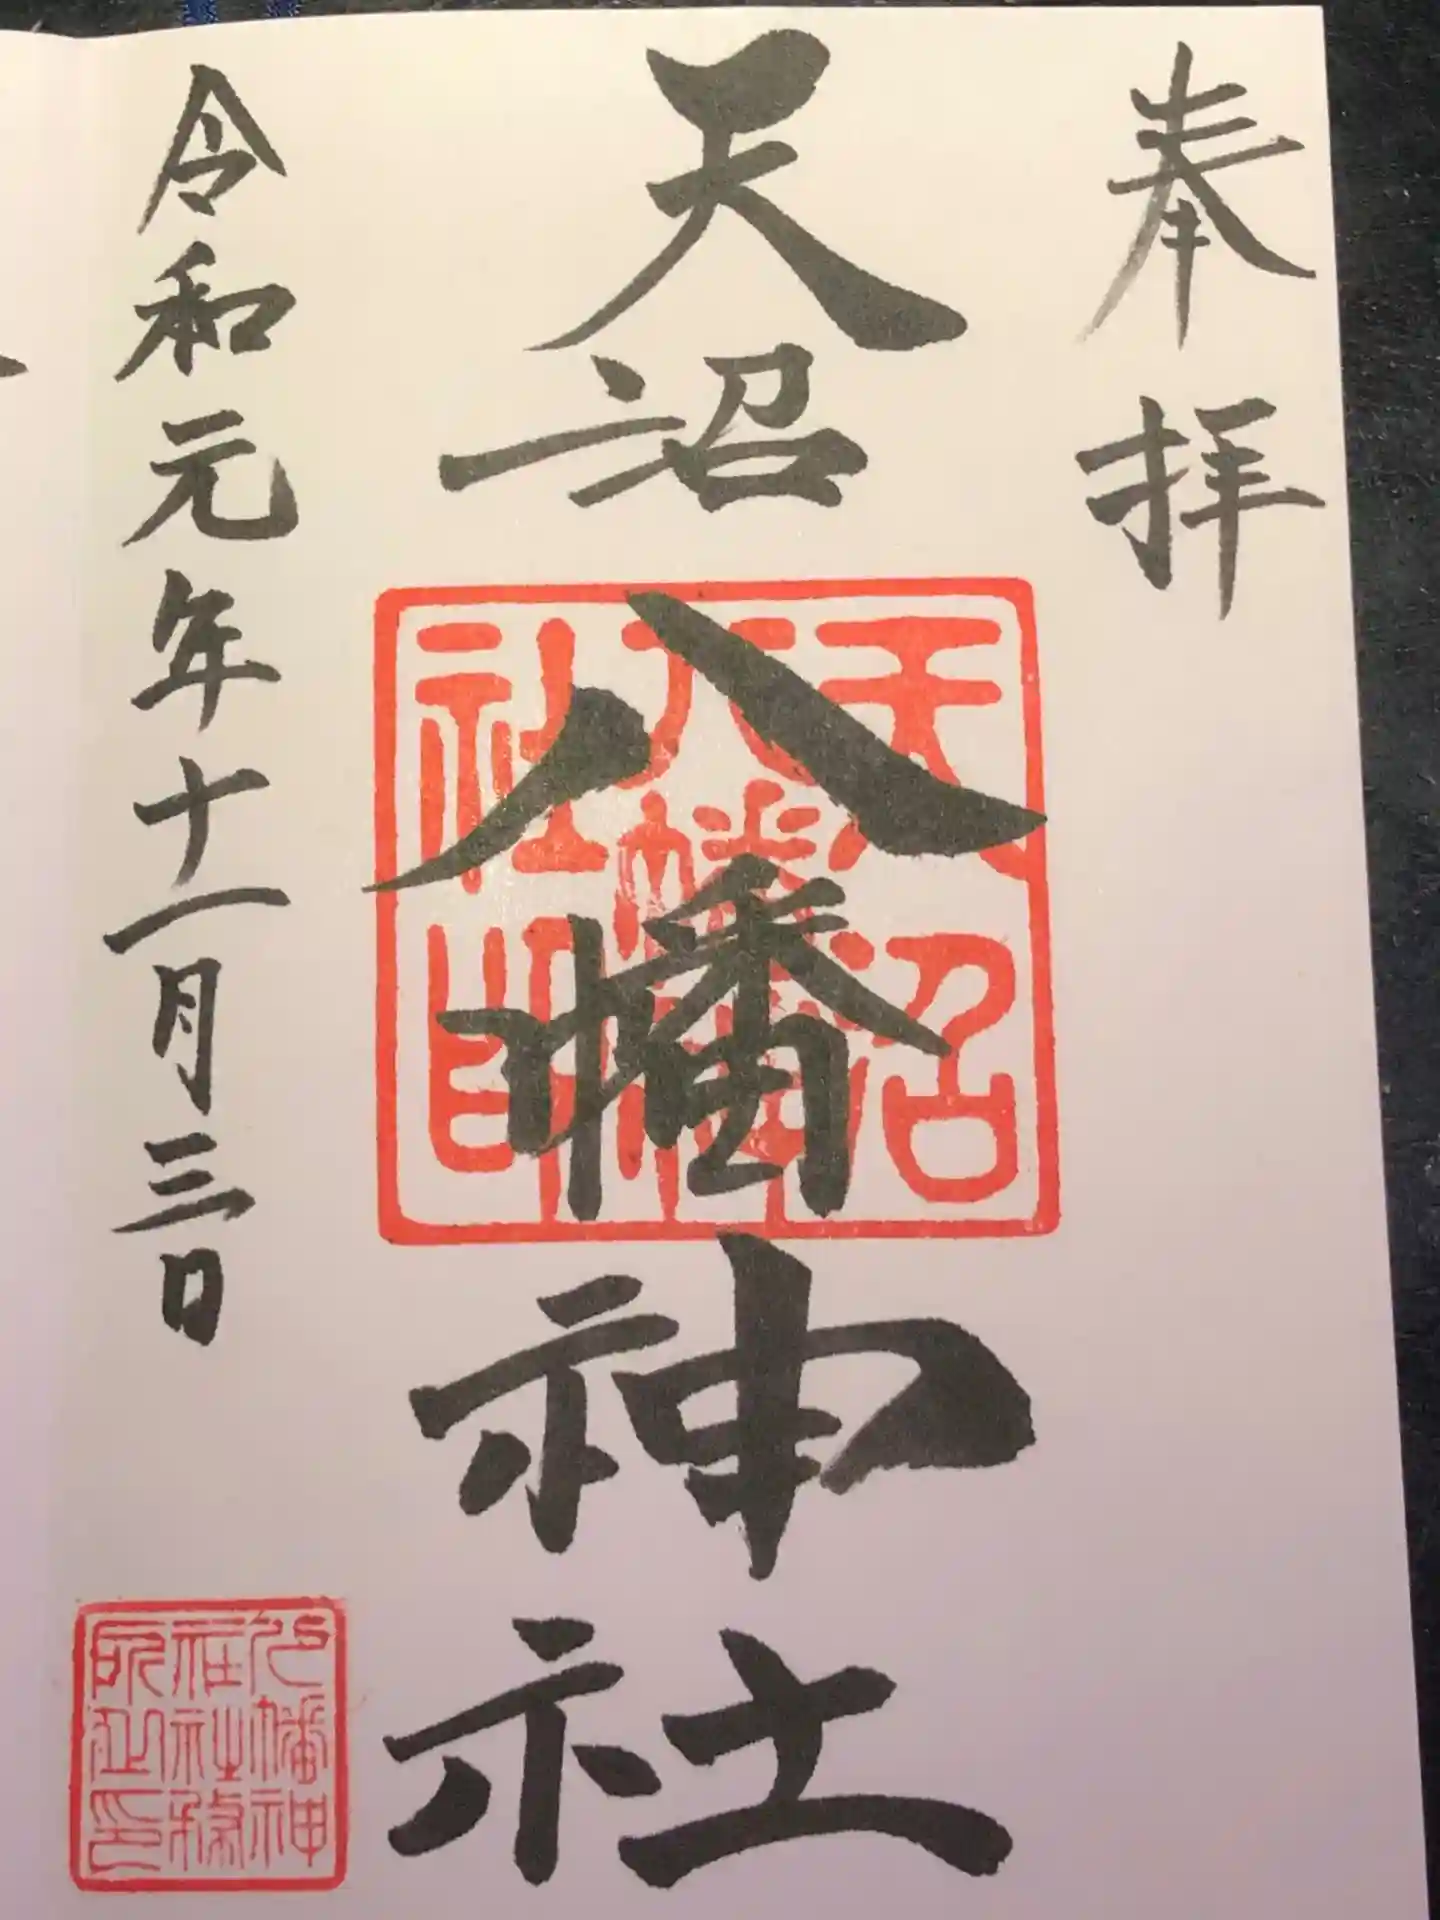 奉拝
天沼八幡神社
天沼
八幡
社印
令和元年十一月三日